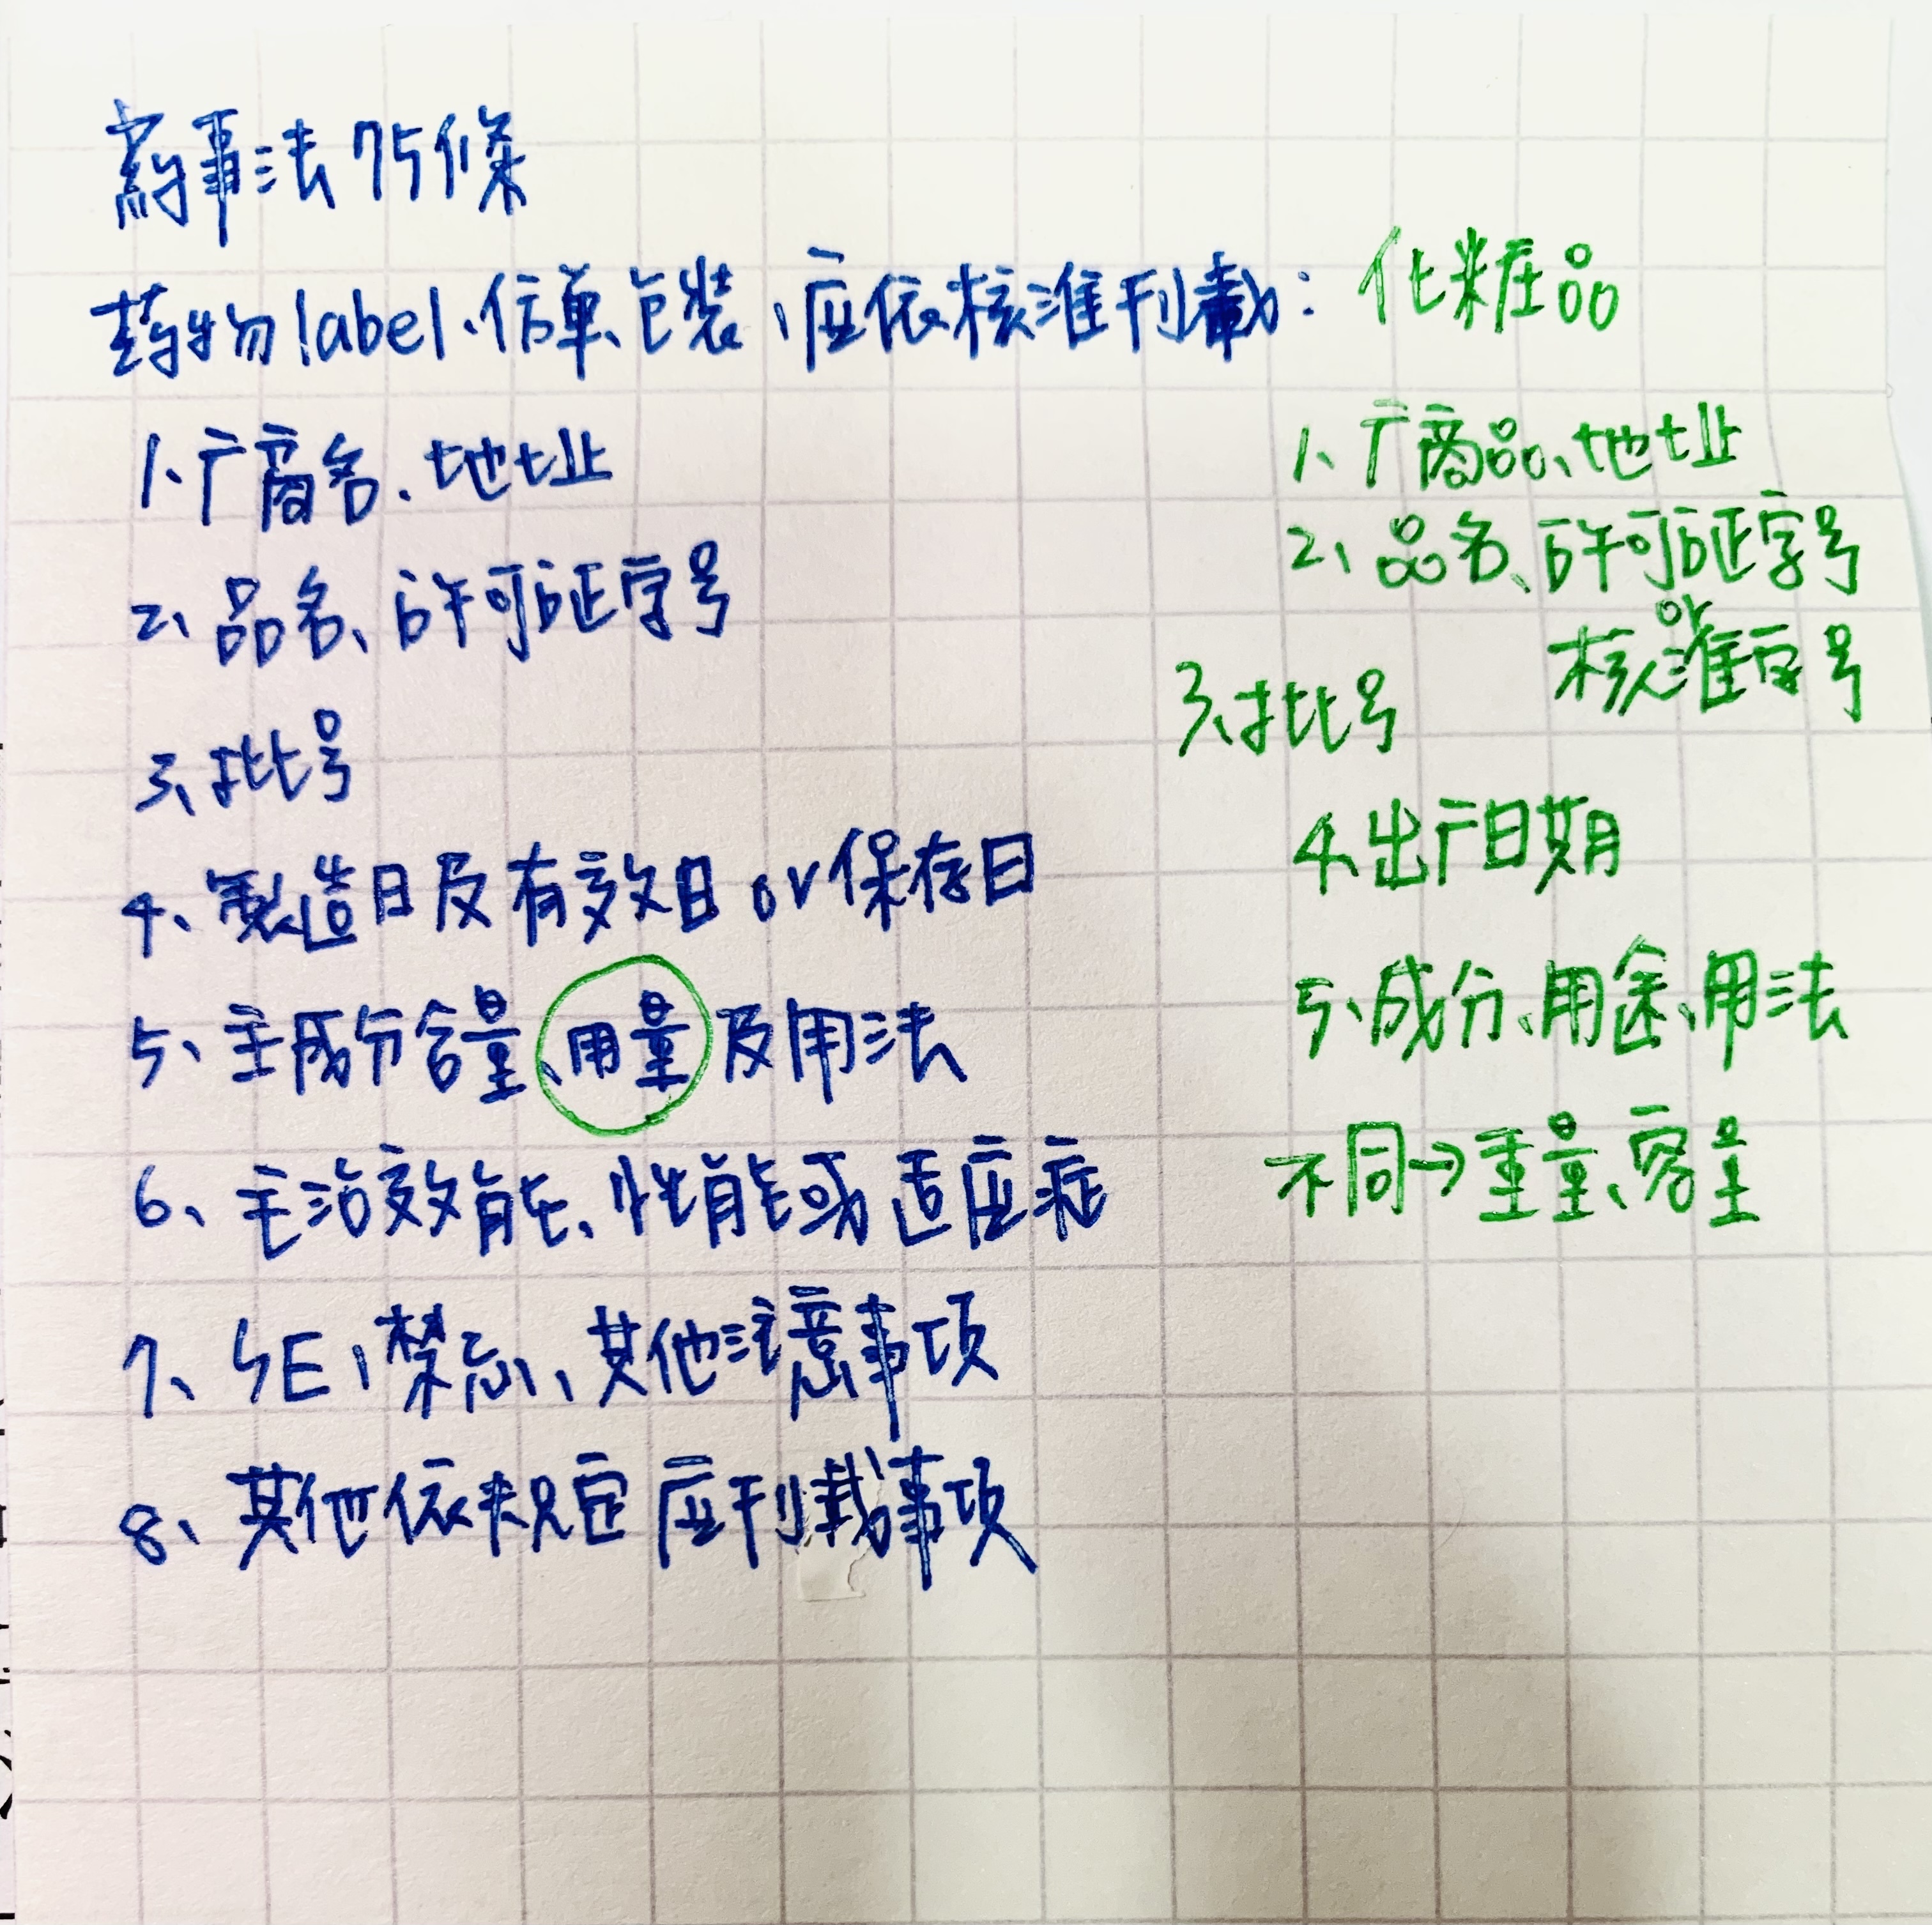 藥事法75條
药物label、仿單、包裝、应依核準刊載:
1、广商名、地址
2、品名、許可証字号
3、批号
4、製造日及有效日or保存日
5、主成分含量、用量及用法
6、主治效能、性能或适应症
7、SE、禁忌、其他注意事项
8、其他依規定应刊載事项
化粧品
1、广商品、地址
2、品名、許可証字号
or
核準字号
3、批号
4、出产日期
5、成分、用途、用法
不同→重量、容量